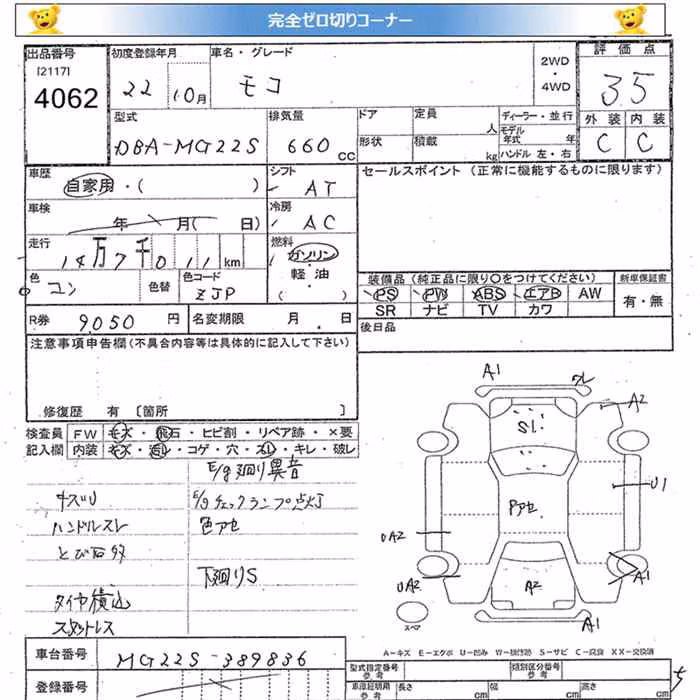 完全ゼロ切りコーナー
出品番号 初度登録年月 車名・グレード 2WD・4WD 評価点
[2117]
4062 22 10月 モコ 3.5
型式 排気量 ドア 定員 人 ディーラー・並行 外装 内装
モデル年式 年
DBA-MG22S 660cc 形状 積載 kg ハンドル 左・右 C C
車歴 シフト セールスポイント (正常に機能するものに限ります)
自家用・( ) AT
車検 冷房
年 月( 日) AC
走行 燃料
14万7千011km ガソリン・軽油
( )
色 色替 色コード 装備品 (純正品に限り〇をつけてください) 新車保証書
コン ZJP PS PW ABS エアB AW 有・無
SR ナビ TV カワ
R券 9050円 名変期限 月 日 後日品
注意事項申告欄(不具合内容等は具体的に記入して下さい)
修復歴 有 [箇所 ]
検査員 FW キズ・飛石・ヒビ割・リペア跡・×要
記入欄 内装 キズ・汚レ・コゲ・穴・スレ・キレ・破レ
E/g廻り異音
キズU E/gチェックランプ点灯
ハンドルスレ 色アセ
とび石多
下廻りS
タイヤ積込
スペアトレス
A1 ワレ A2
S1
U1
Pアセ
UA2
UA2 A2 A1
A1
スペア
A-キズ E-エクボ U-凹み W-補修跡 S-サビ C-腐食 XX-交換済
車台番号 MG22S-389836
登録番号
型式指定番号 参考 類別区分番号 参考
車庫証明用 参考 長さ cm 幅 cm 高さ cm